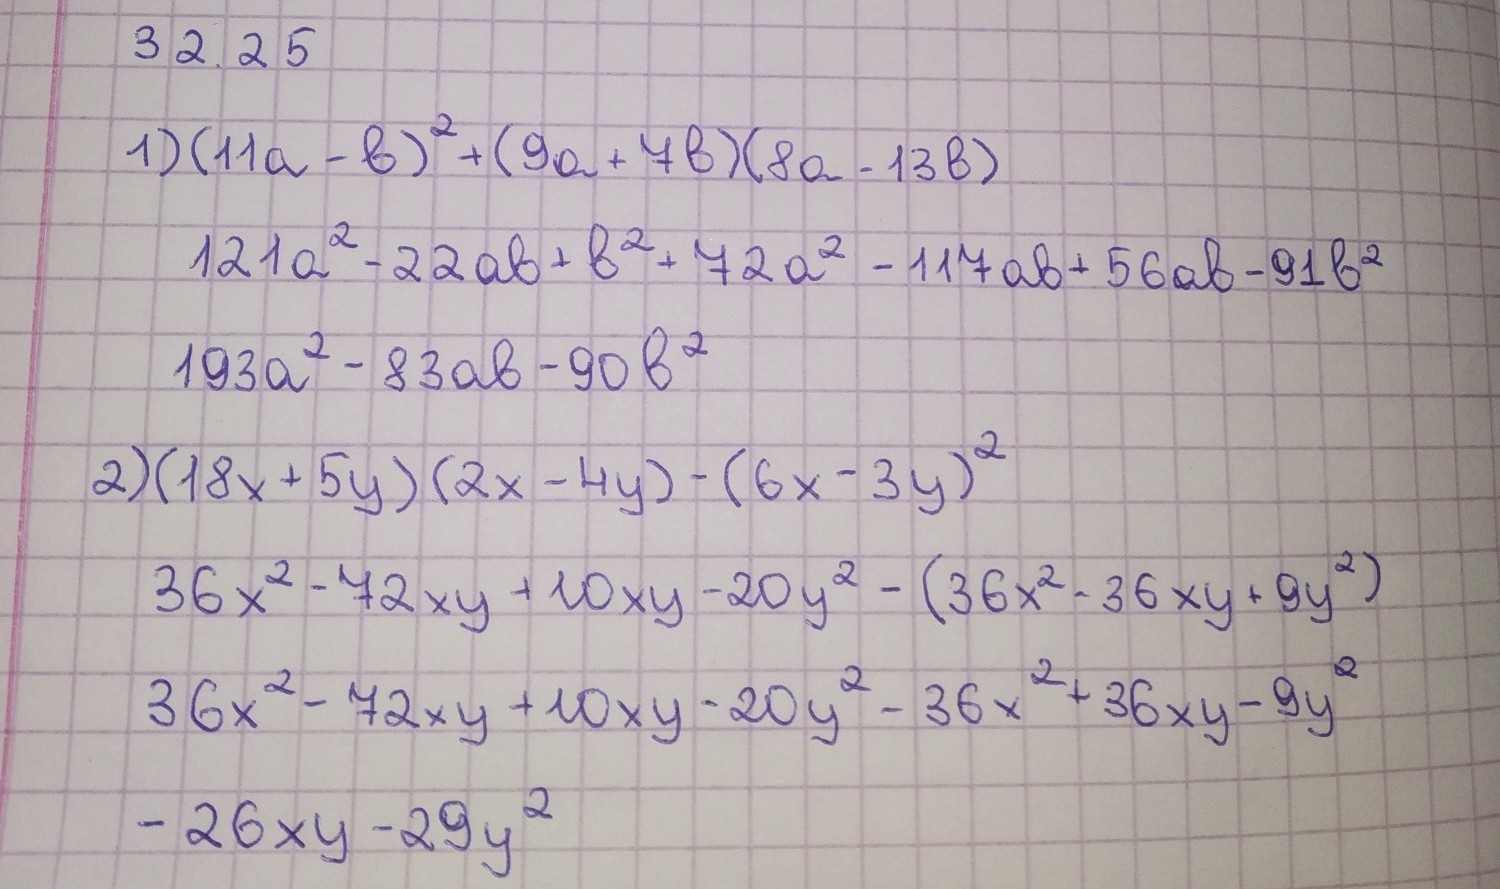 32.25
1)(11a-b)²+(9a+7b)(8a-13b)
121a²-22ab+b²+72a²-117ab+56ab-91b²
193a²-83ab-90b²
2)(18x+5y)(2x-4y)-(6x-3y)²
36x²-72xy+10xy-20y²-(36x²-36xy+9y²)
36x²-72xy+10xy-20y²-36x²+36xy-9y²
-26xy-29y²